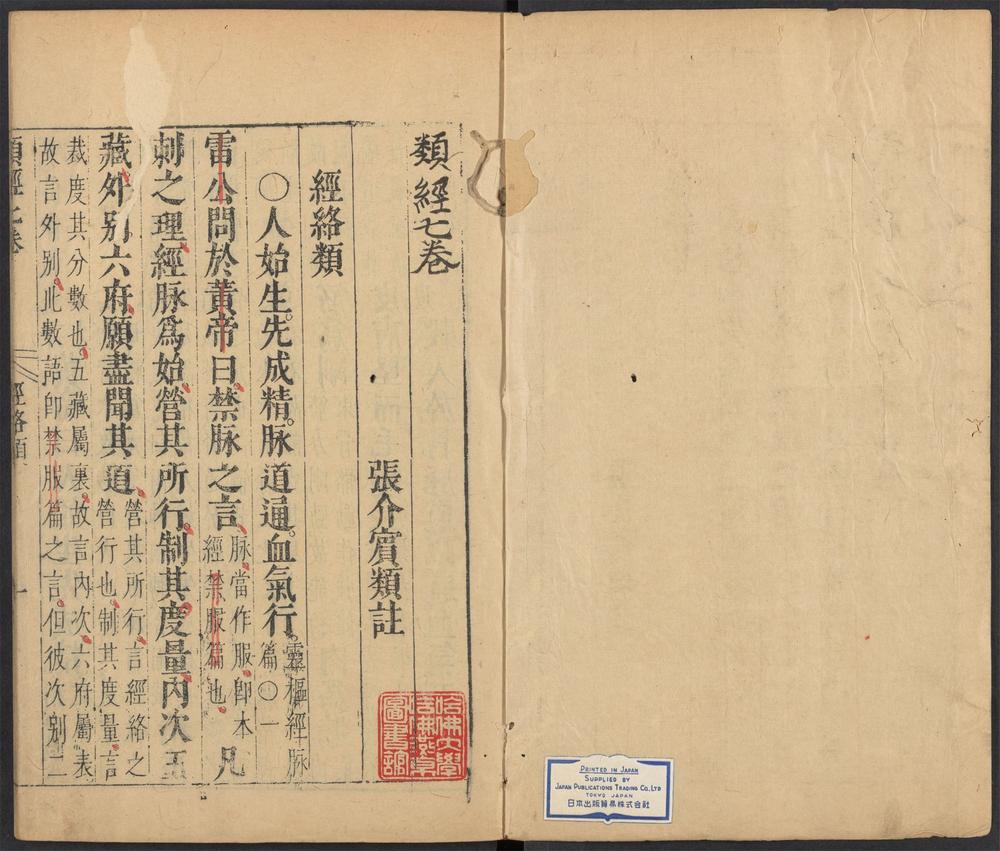 類經七卷
張介賓類註
經絡類
○人始生。先成精。脉道通。血氣行。靈樞經脉
篇○一
雷公問於黃帝曰。禁脉之言。脉當作服。卽本
經禁服篇也。凡
刺之理。經脉爲始。營其所行。制其度量。內次五
藏。外別六府。願盡聞其道。營其所行。言經絡之
營行也。制其度量。言
裁度其分數也。五藏屬裏。故言內次。六府屬表
故言外別。此數語卽禁服篇之言。但彼次別二
類經七卷
經絡類
一
哈佛大學
哈佛燕京
圖書館
PRINTED IN JAPAN
SUPPLIED BY
JAPAN PUBLICATIONS TRADING CO., LTD
TOKYO JAPAN
日本出版貿易株式会社